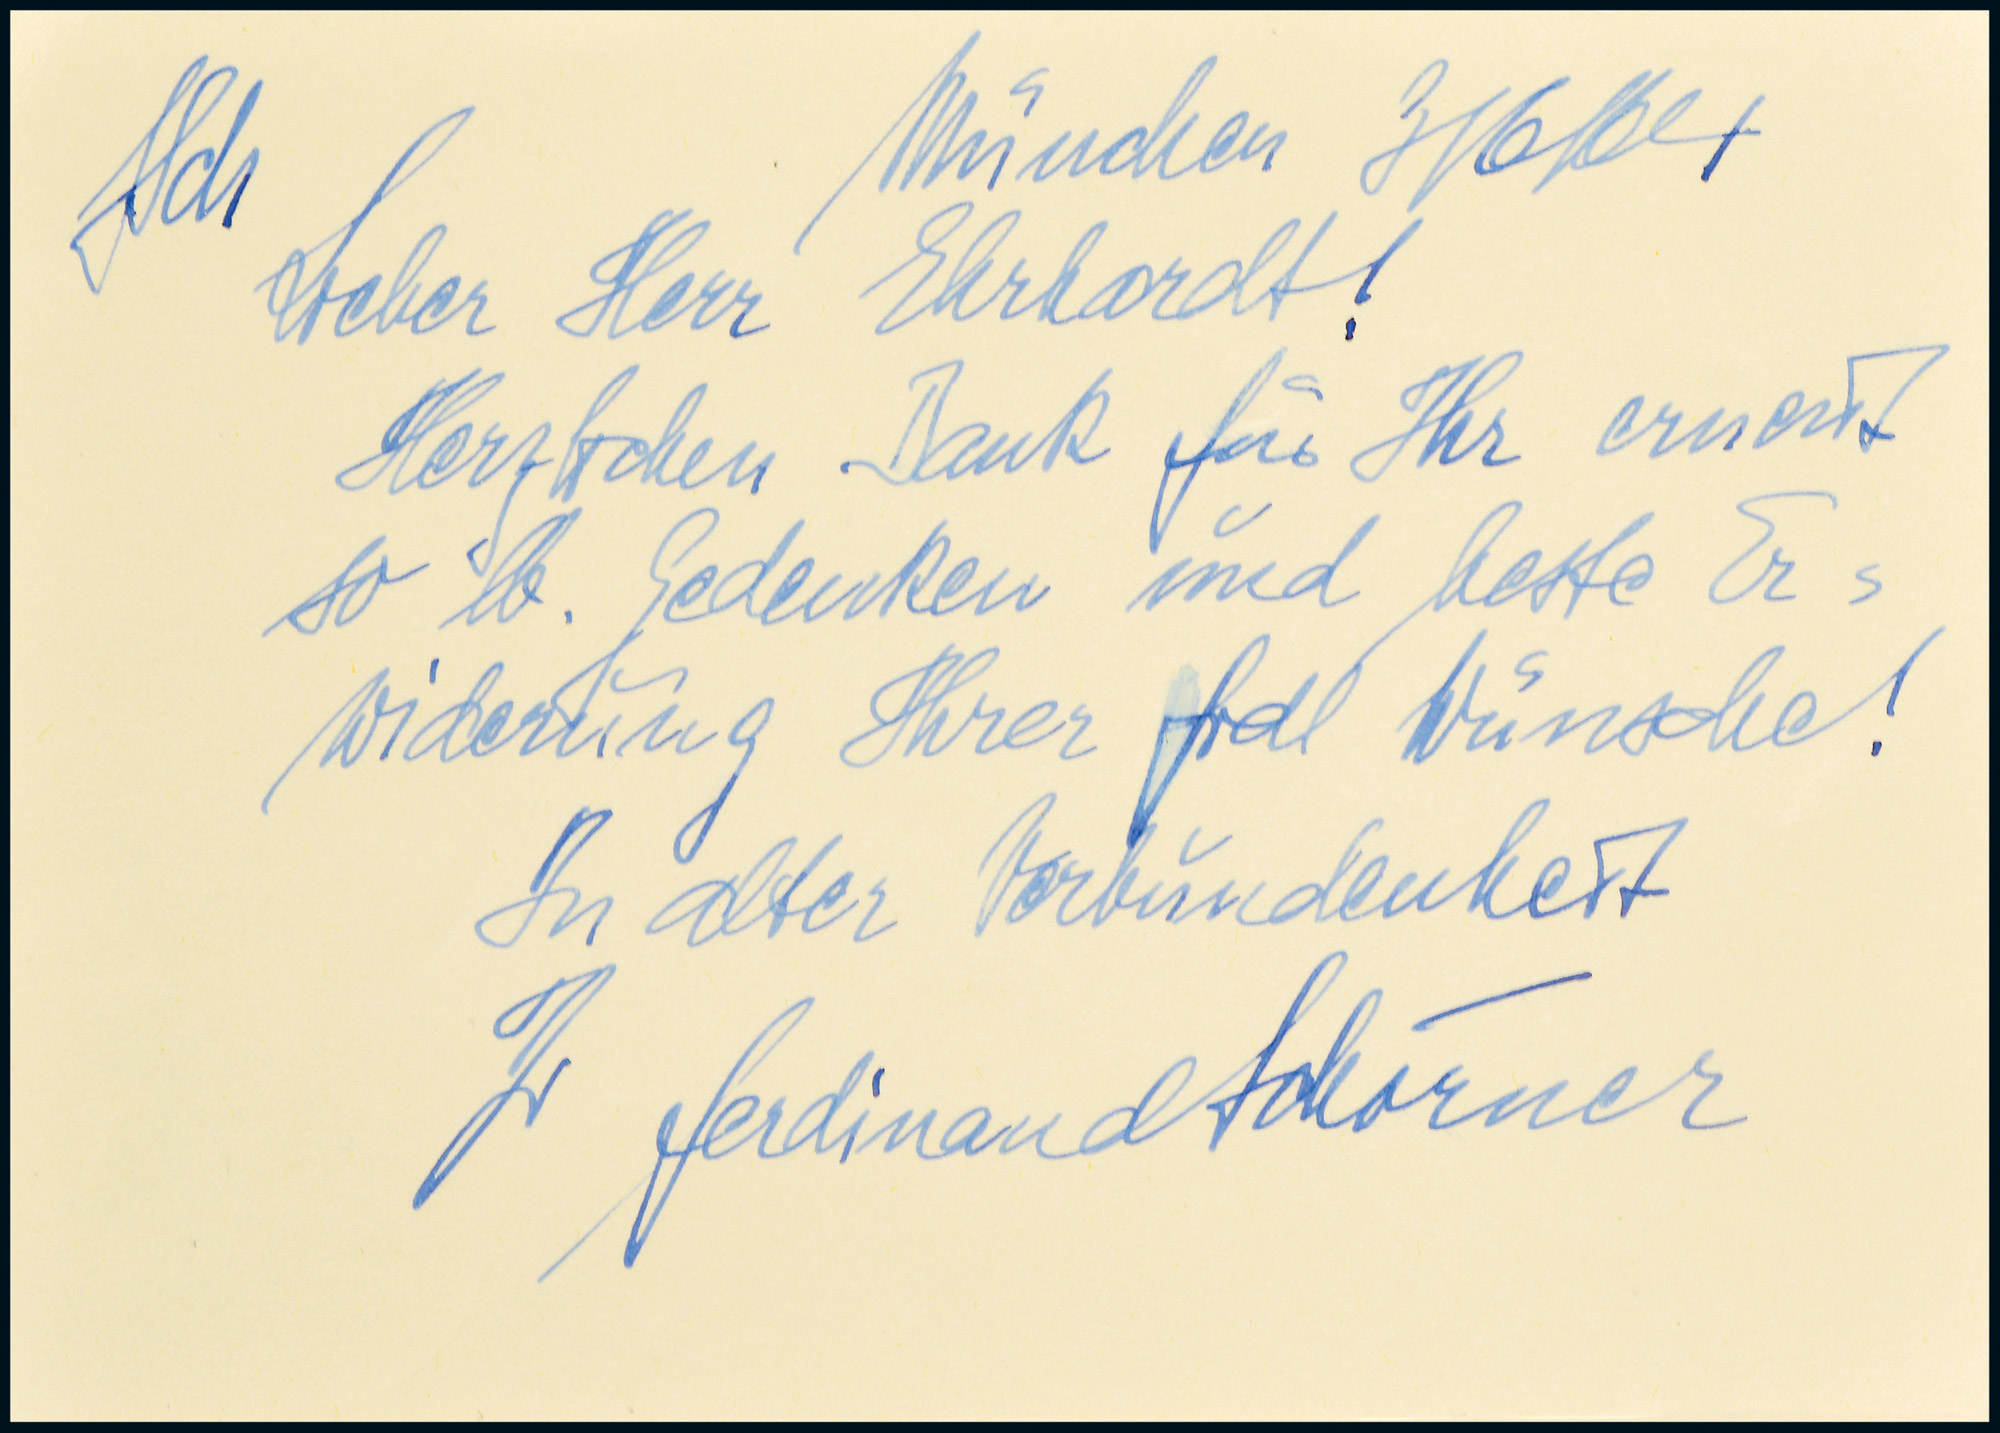 München
Lieber Herr Ehrhardt!
Herzlichen Dank für Ihr erneut
so lb. Gedenken und beste Er=
widerung Ihrer frdl Wünsche!
In alter Verbundenheit
Ihr Ferdinand Schörner